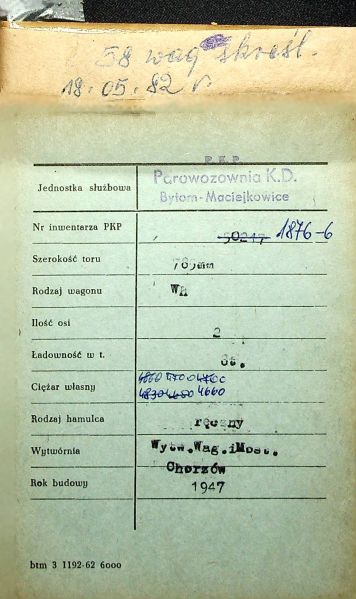 58 wag skreśl.
18.05.82 r.
P.K.P.
Jednostka służbowa Parowozownia K.D.
Bytom-Maciejkowice
Nr inwentarza PKP 50247 1876-6
Szerokość toru 785mm
Rodzaj wagonu
Ilość osi 2
Ładowność w t. 8t.
Ciężar własny 4860 4700 4760
4830 4660
Rodzaj hamulca ręczny
Wytwórnia Wytw.Wag.iMost.
Chorzów
Rok budowy 1947
btm 3 1192-62 6000